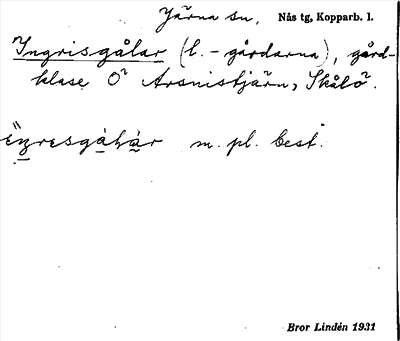 Järna sn, Nås tg, Kopparb. l.
Ingrisgålar (l. -gårdarna), gård-
klase O Arsnistjärn, Skålö.
m. pl. best.
Bror Lindén 1931